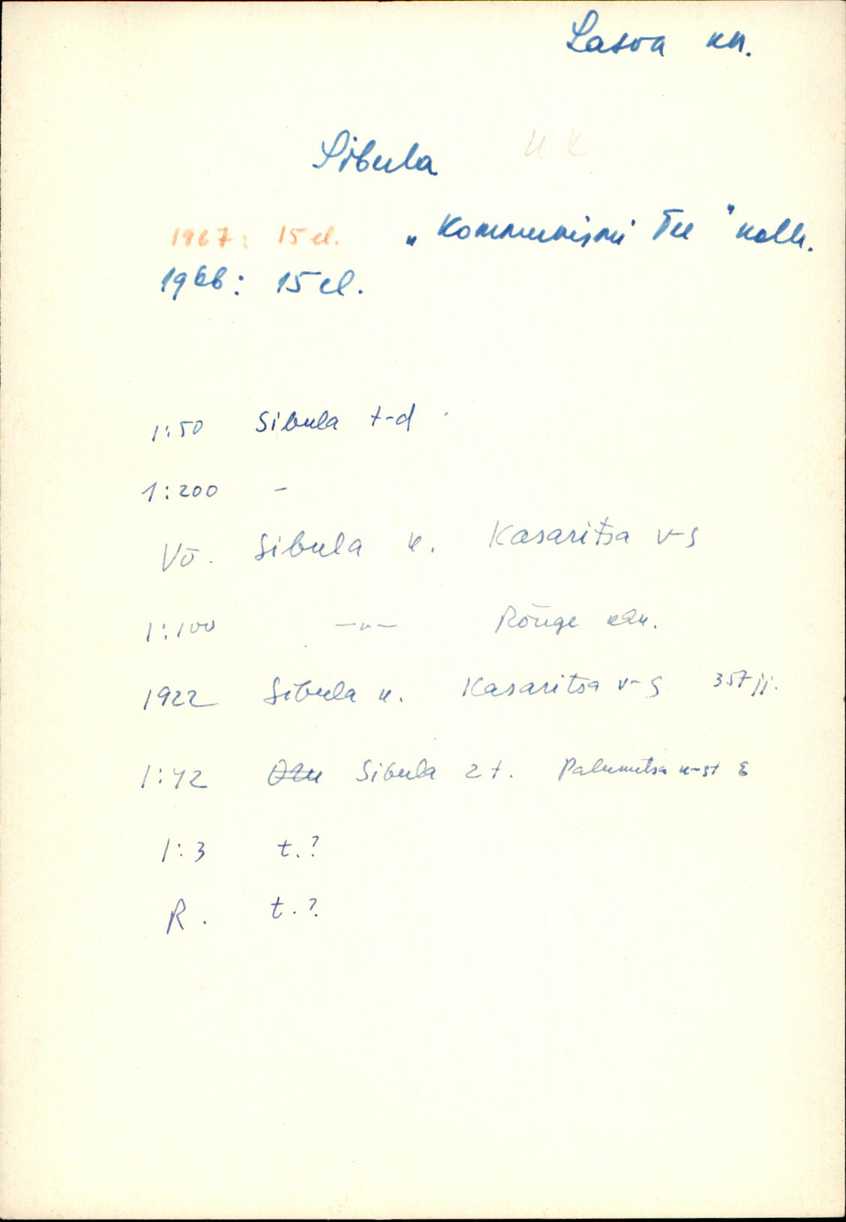 Lasva kn.
Sibula u k
1967: 15 el. „Kommunismi Tee" kolh.
1966: 15 el.
1:50 Sibula t-d
1:200 -
Võ. Sibula k. Kasaritsa v-s
1:100 —„— Rõuge khk.
1922 Sibula k. Kasaritsa v-s 357 jj.
1:42 Sibula 2 t. k-st
1:3 t.?
R. t.?